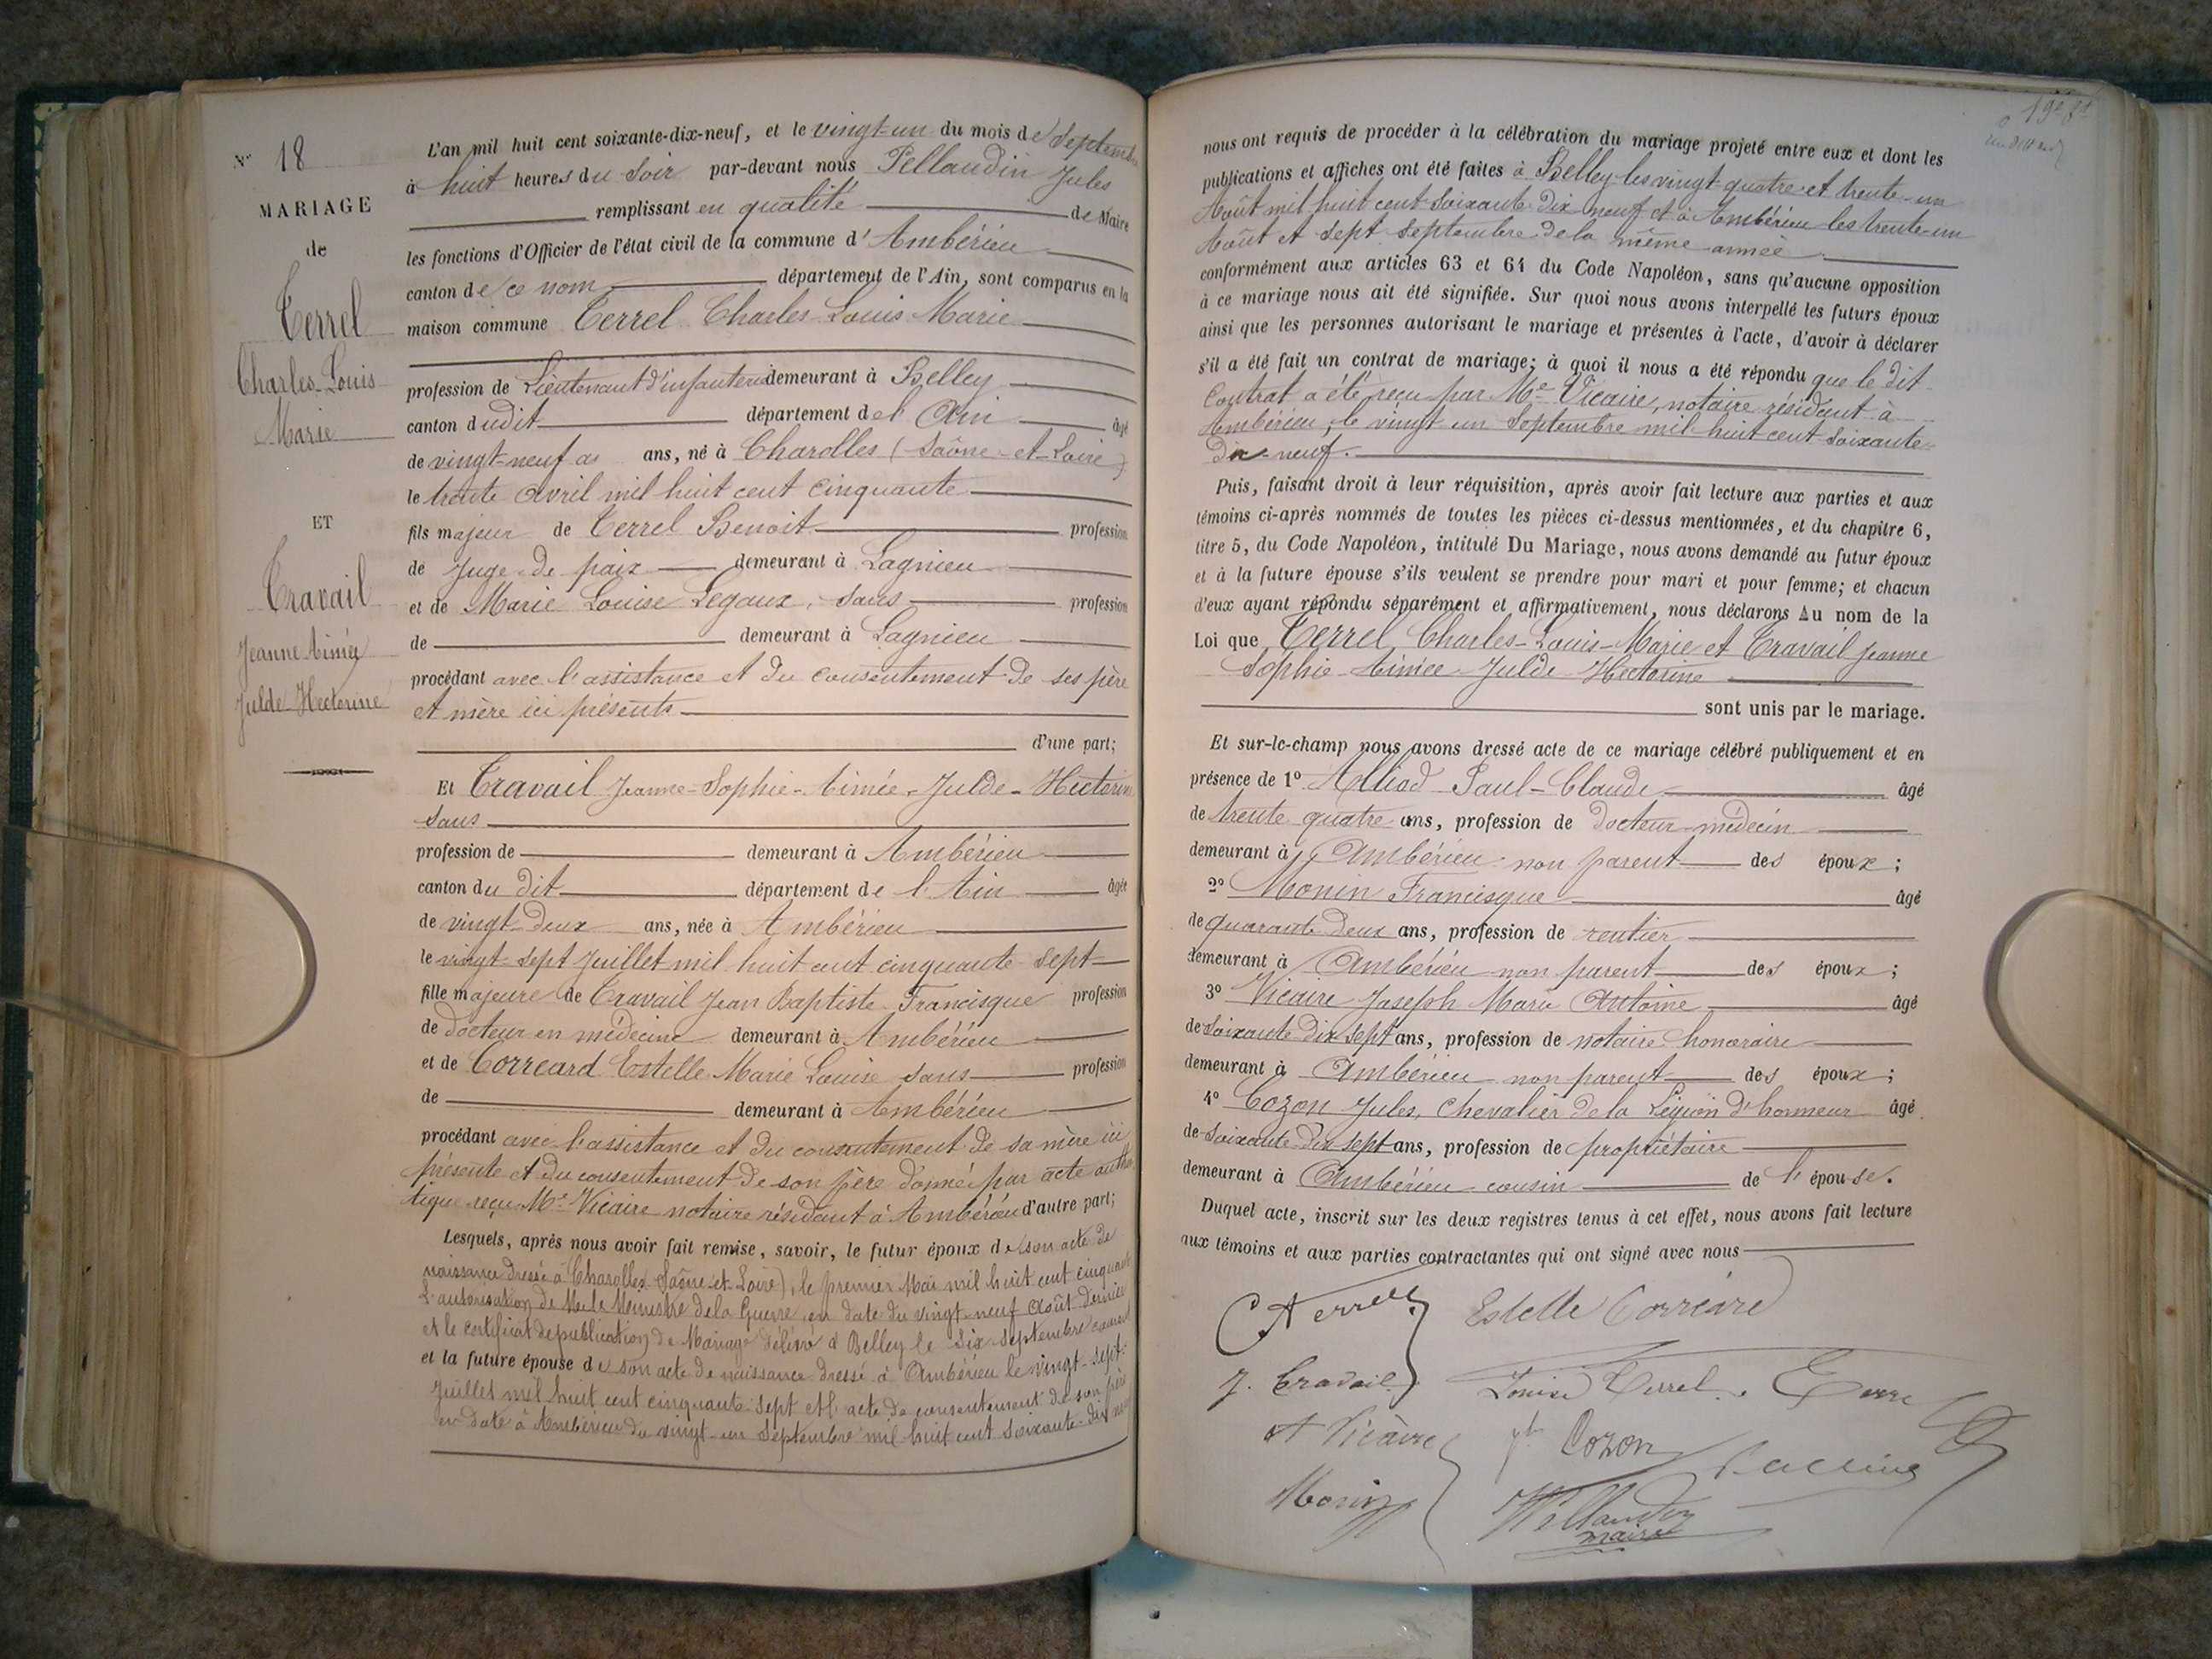 N° 18
MARIAGE
de
Terrel
Charles-Louis
Marie
ET
Travail
Jeanne Aimée
Julde-Hectorine
L'an mil huit cent soixante-dix-neuf, et le vingt-un du mois de Septembre
à huit heures du soir par-devant nous Pellaudin Jules
remplissant en qualité de Maire
les fonctions d'Officier de l'état civil de la commune d'Ambérieu
canton de ce nom département de l'Ain, sont comparus en la
maison commune Terrel Charles Louis Marie
profession de Lieutenant d'infanterie demeurant à Belley
canton dudit département de l'Ain âgé
de vingt-neuf ans, né à Charolles (Saône-et-Loire)
le trente avril mil huit cent cinquante
fils majeur de Terrel Benoit profession
de Juge de paix demeurant à Lagnieu
et de Marie Louise Legoux, sans profession
de demeurant à Lagnieu
procédant avec l'assistance et du consentement de ses père
et mère ici présents
d'une part;
Et Travail Jeanne-Sophie-Aimée-Julde-Hectorine
sans
profession de demeurant à Ambérieu
canton du dit département de l'Ain âgée
de vingt-deux ans, née à Ambérieu
le vingt-sept Juillet mil huit cent cinquante sept
fille majeure de Travail Jean Baptiste Francisque profession
de docteur en médecine demeurant à Ambérieu
et de Correard Estelle Marie Louise sans profession
de demeurant à Ambérieu
procédant avec l'assistance et du consentement de sa mère ici
présente et du consentement de son père donné par acte authen
tique reçu Me Vicaire notaire résidant à Ambérieu d'autre part;
Lesquels, après nous avoir fait remise, savoir, le futur époux de son acte de
naissance dressé à Charolles (Saône-et-Loire), le premier Mai mil huit cent cinquante
l'autorisation de M. le Ministre de la Guerre en date du vingt-neuf Août dernier
et le certificat de publication de Mariage délivré à Belley le six septembre courant
et la future épouse de son acte de naissance dressé à Ambérieu le vingt-sept
Juillet mil huit cent cinquante sept et l'acte de consentement de son père
en date à Ambérieu du vingt-un Septembre mil huit cent soixante-dix neuf
nous ont requis de procéder à la célébration du mariage projeté entre eux et dont les
publications et affiches ont été faites à Belley les vingt-quatre et trente-un
Août mil huit cent soixante-dix neuf et à Ambérieu les trente-un
Août et sept Septembre de la même année
conformément aux articles 63 et 64 du Code Napoléon, sans qu'aucune opposition
à ce mariage nous ait été signifiée. Sur quoi nous avons interpellé les futurs époux
ainsi que les personnes autorisant le mariage et présentes à l'acte, d'avoir à déclarer
s'il a été fait un contrat de mariage; à quoi il nous a été répondu que le dit
Contrat a été reçu par Me Vicaire, notaire résidant à
Ambérieu, le vingt un Septembre mil huit cent soixante-
Dix-neuf.
Puis, faisant droit à leur réquisition, après avoir fait lecture aux parties et aux
témoins ci-après nommés de toutes les pièces ci-dessus mentionnées, et du chapitre 6,
titre 5, du Code Napoléon, intitulé Du Mariage, nous avons demandé au futur époux
et à la future épouse s'ils veulent se prendre pour mari et pour femme; et chacun
d'eux ayant répondu séparément et affirmativement, nous déclarons Au nom de la
Loi que Terrel Charles-Louis-Marie et Travail Jeanne
Sophie-Aimée-Julde-Hectorine
sont unis par le mariage.
Et sur-le-champ nous avons dressé acte de ce mariage célébré publiquement et en
présence de 1° Alliod Paul-Claude âgé
de trente quatre ans, profession de Docteur-médecin
demeurant à Ambérieu non parent des époux;
2° Monin Francisque âgé
de quarante deux ans, profession de rentier
demeurant à Ambérieu non parent des époux;
3° Vicaire Joseph Marie Antoine âgé
de soixante dix-sept ans, profession de notaire honoraire
demeurant à Ambérieu non parent des époux;
4° Cozon Jules, Chevalier de la Légion d'honneur âgé
de soixante dix sept ans, profession de propriétaire
demeurant à Ambérieu cousin de l'épouse.
Duquel acte, inscrit sur les deux registres tenus à cet effet, nous avons fait lecture
aux témoins et aux parties contractantes qui ont signé avec nous
Estelle Correard
J. Travail Louise Terrel
Vicaire Cozon
Monin Pellaudin
maire